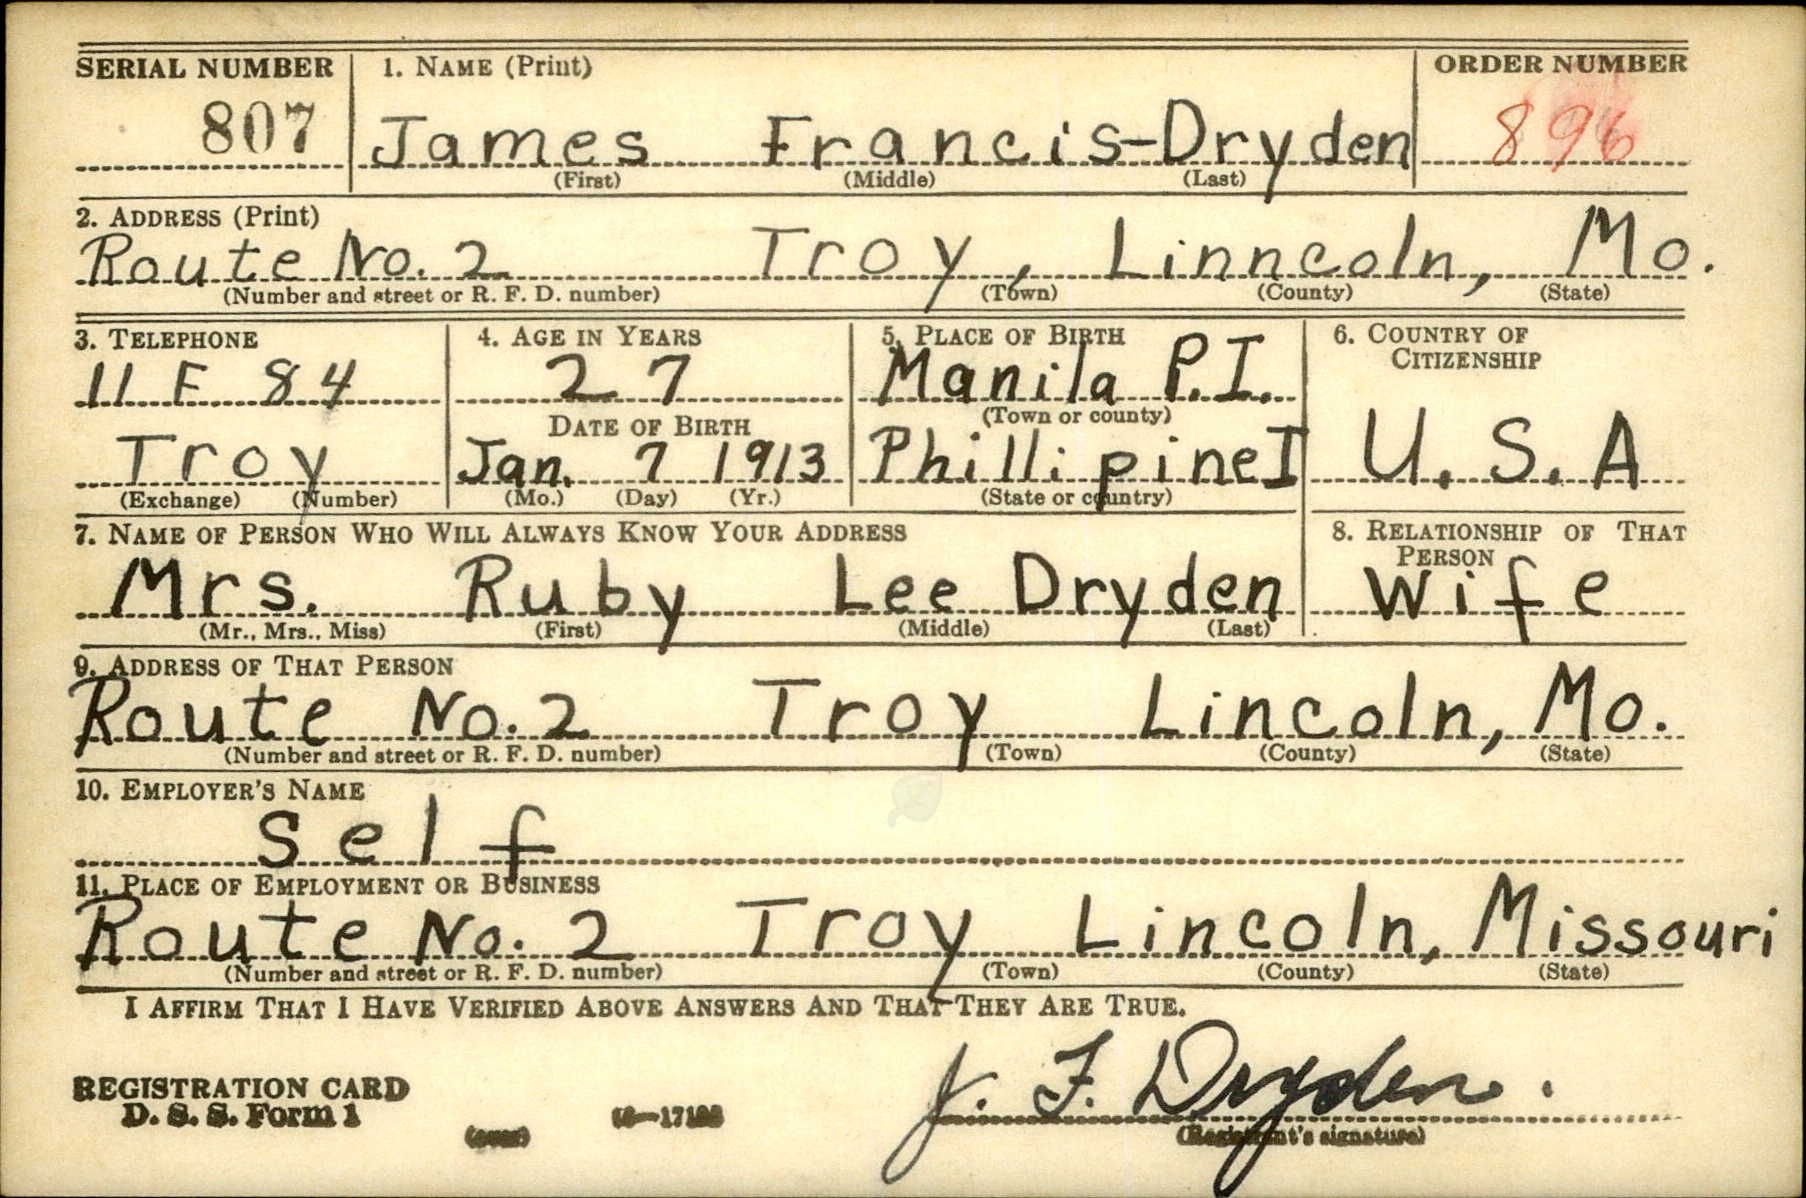 SERIAL NUMBER 1. NAME (Print) ORDER NUMBER
807 James Francis-Dryden 896
(First) (Middle) (Last)
2. ADDRESS (Print)
Route No. 2 Troy, Linncoln, Mo.
(Number and street or R. F. D. number) (Town) (County) (State)
3. TELEPHONE 4. AGE IN YEARS 5. PLACE OF BIRTH 6. COUNTRY OF
CITIZENSHIP
11 F 84 27 Manila P.I.
DATE OF BIRTH (Town or county)
Troy Jan. 7 1913 Phillipine I U.S.A
(Exchange) (Number) (Mo.) (Day) (Yr.) (State or country)
7. NAME OF PERSON WHO WILL ALWAYS KNOW YOUR ADDRESS 8. RELATIONSHIP OF THAT
PERSON
Mrs. Ruby Lee Dryden Wife
(Mr., Mrs., Miss) (First) (Middle) (Last)
9. ADDRESS OF THAT PERSON
Route No. 2 Troy Lincoln, Mo.
(Number and street or R. F. D. number) (Town) (County) (State)
10. EMPLOYER'S NAME
Self
11. PLACE OF EMPLOYMENT OR BUSINESS
Route No. 2 Troy Lincoln, Missouri
(Number and street or R. F. D. number) (Town) (County) (State)
I AFFIRM THAT I HAVE VERIFIED ABOVE ANSWERS AND THAT THEY ARE TRUE.
J. F. Dryden.
REGISTRATION CARD
D. S. S. Form 1 (over) (Registrant's signature)